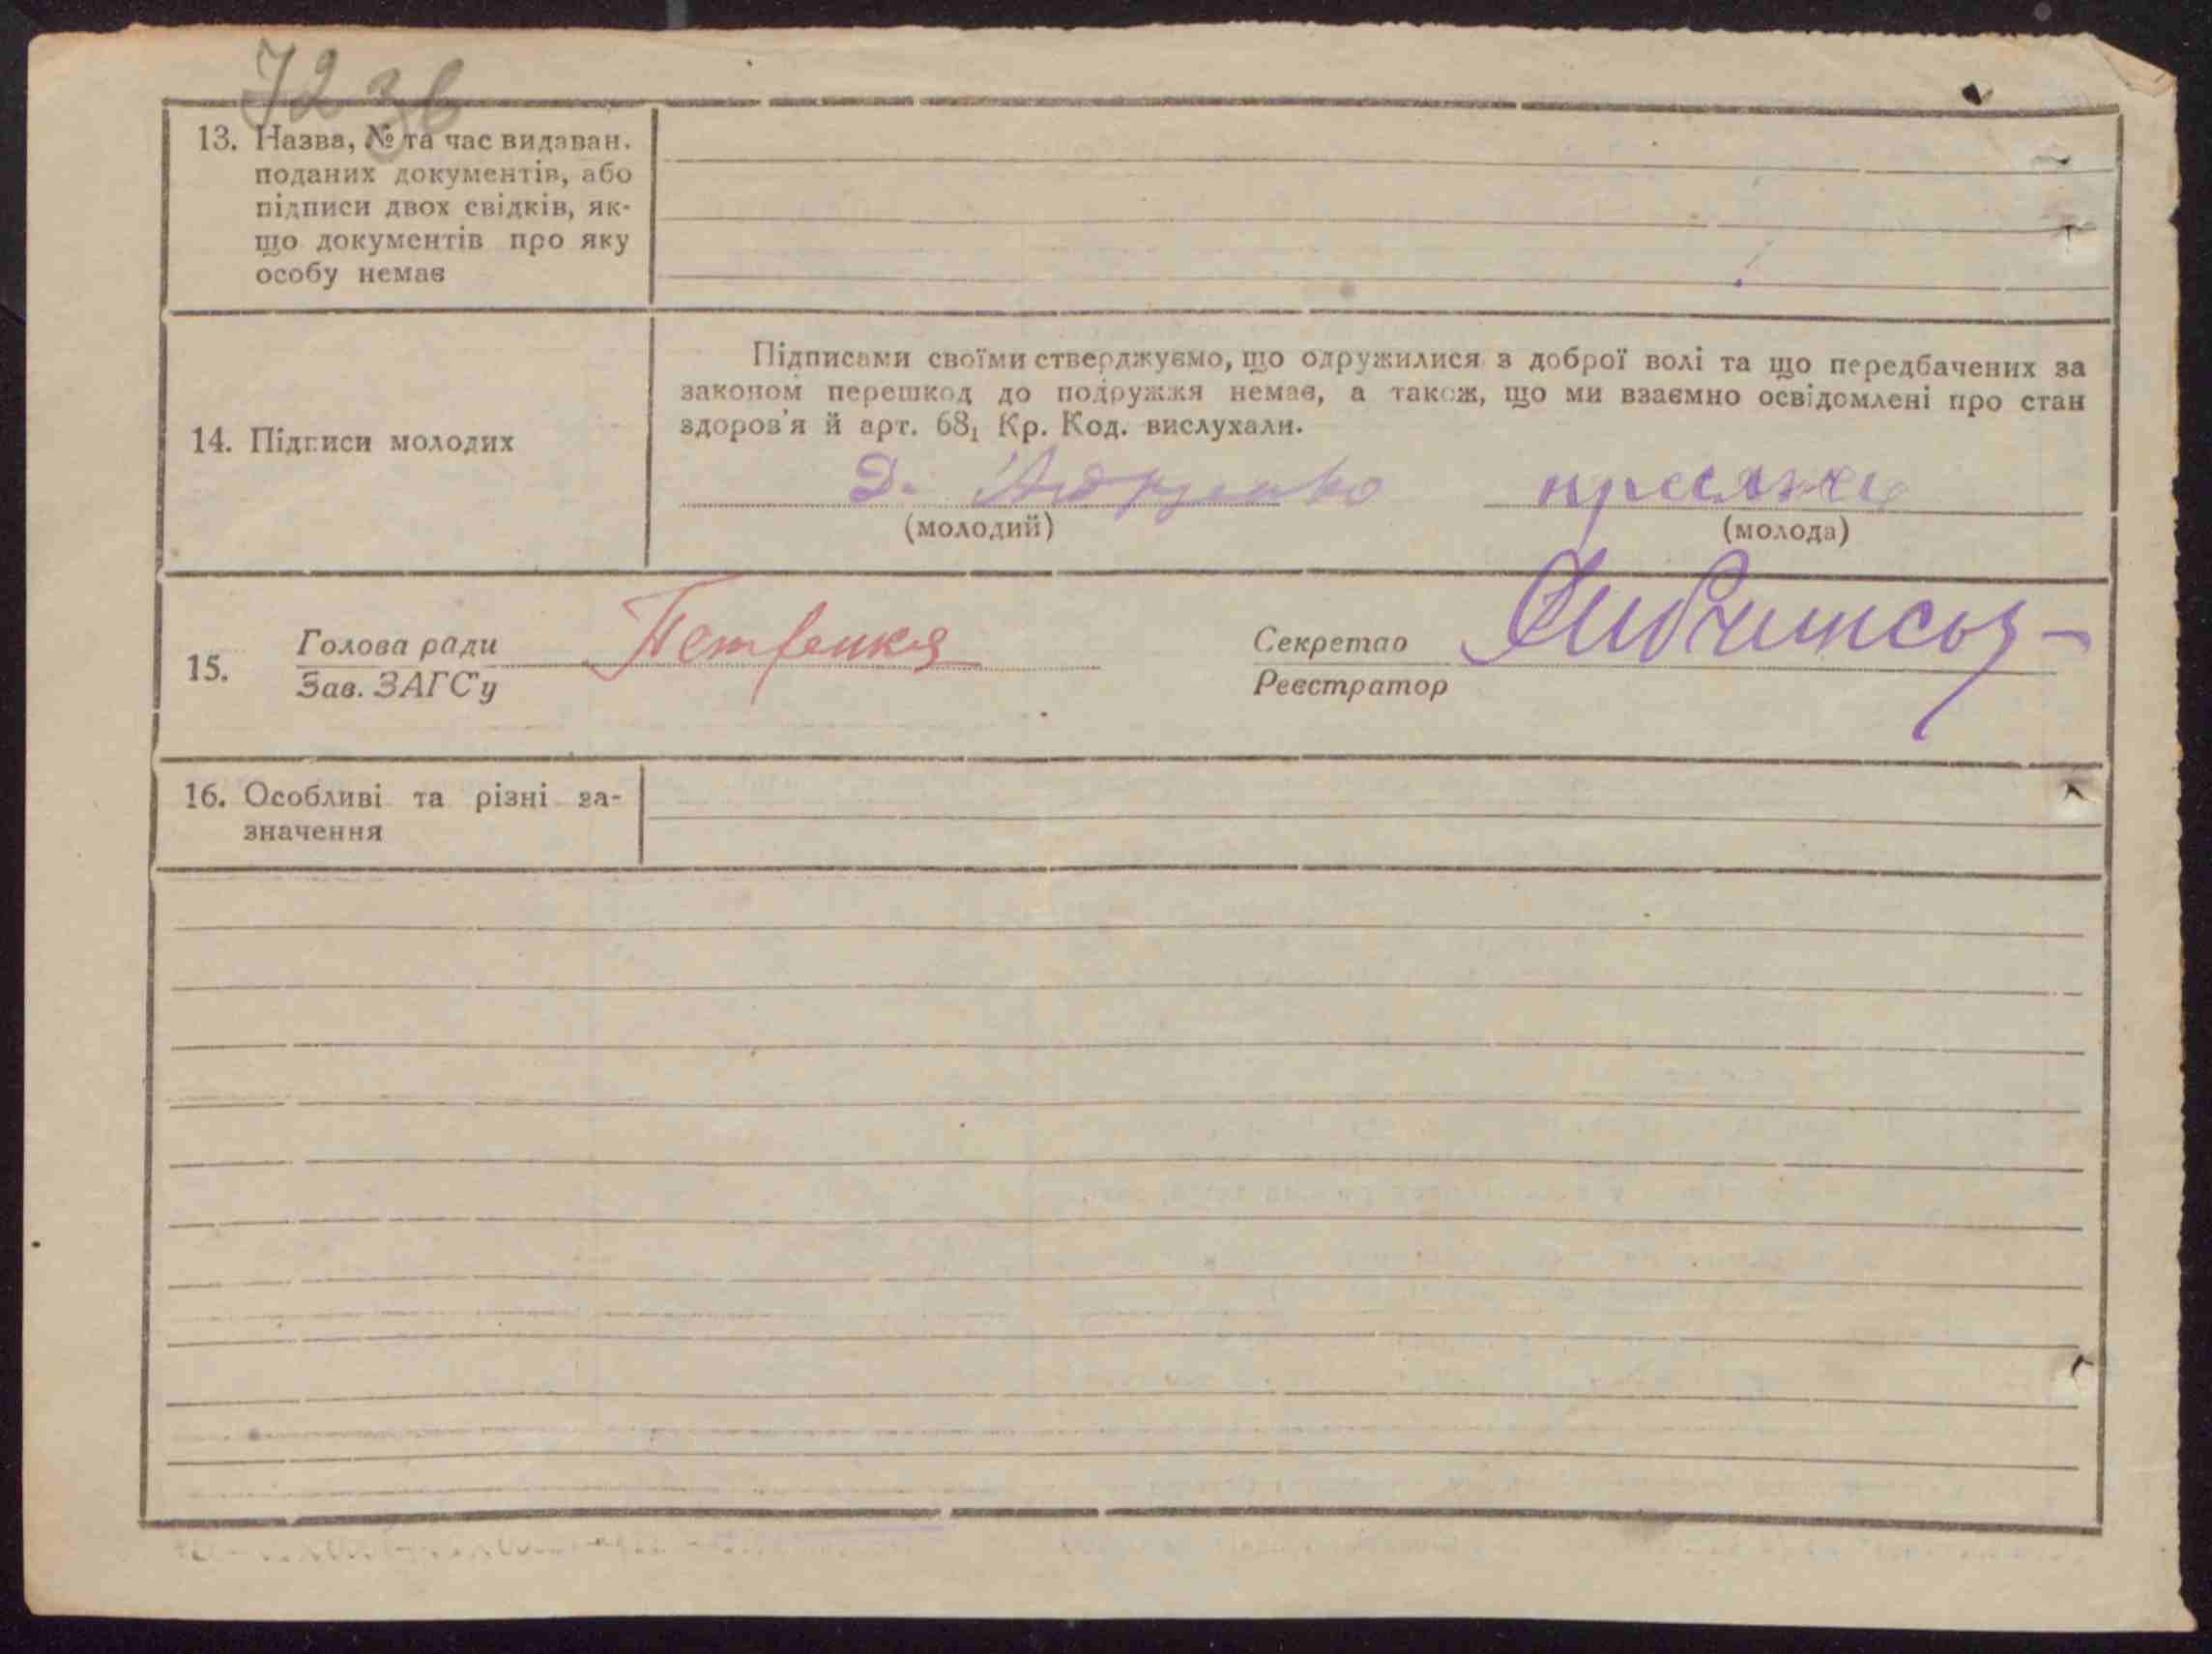 72 зв
13. Назва, № та час видаван.
поданих документів, або
підписи двох свідків, як-
що документів про яку
особу немає
Підписами своїми стверджуємо, що одружилися з доброї волі та що передбачених за
законом перешкод до подружжя немає, а також, що ми взаємно освідомлені про стан
здоров'я й арт. 68₁ Кр. Код. вислухали.
14. Підписи молодих
Д.
(молодий) (молода)
15. Голова ради Секретар
Зав. ЗАГС'у Реєстратор
16. Особливі та різні за-
значення